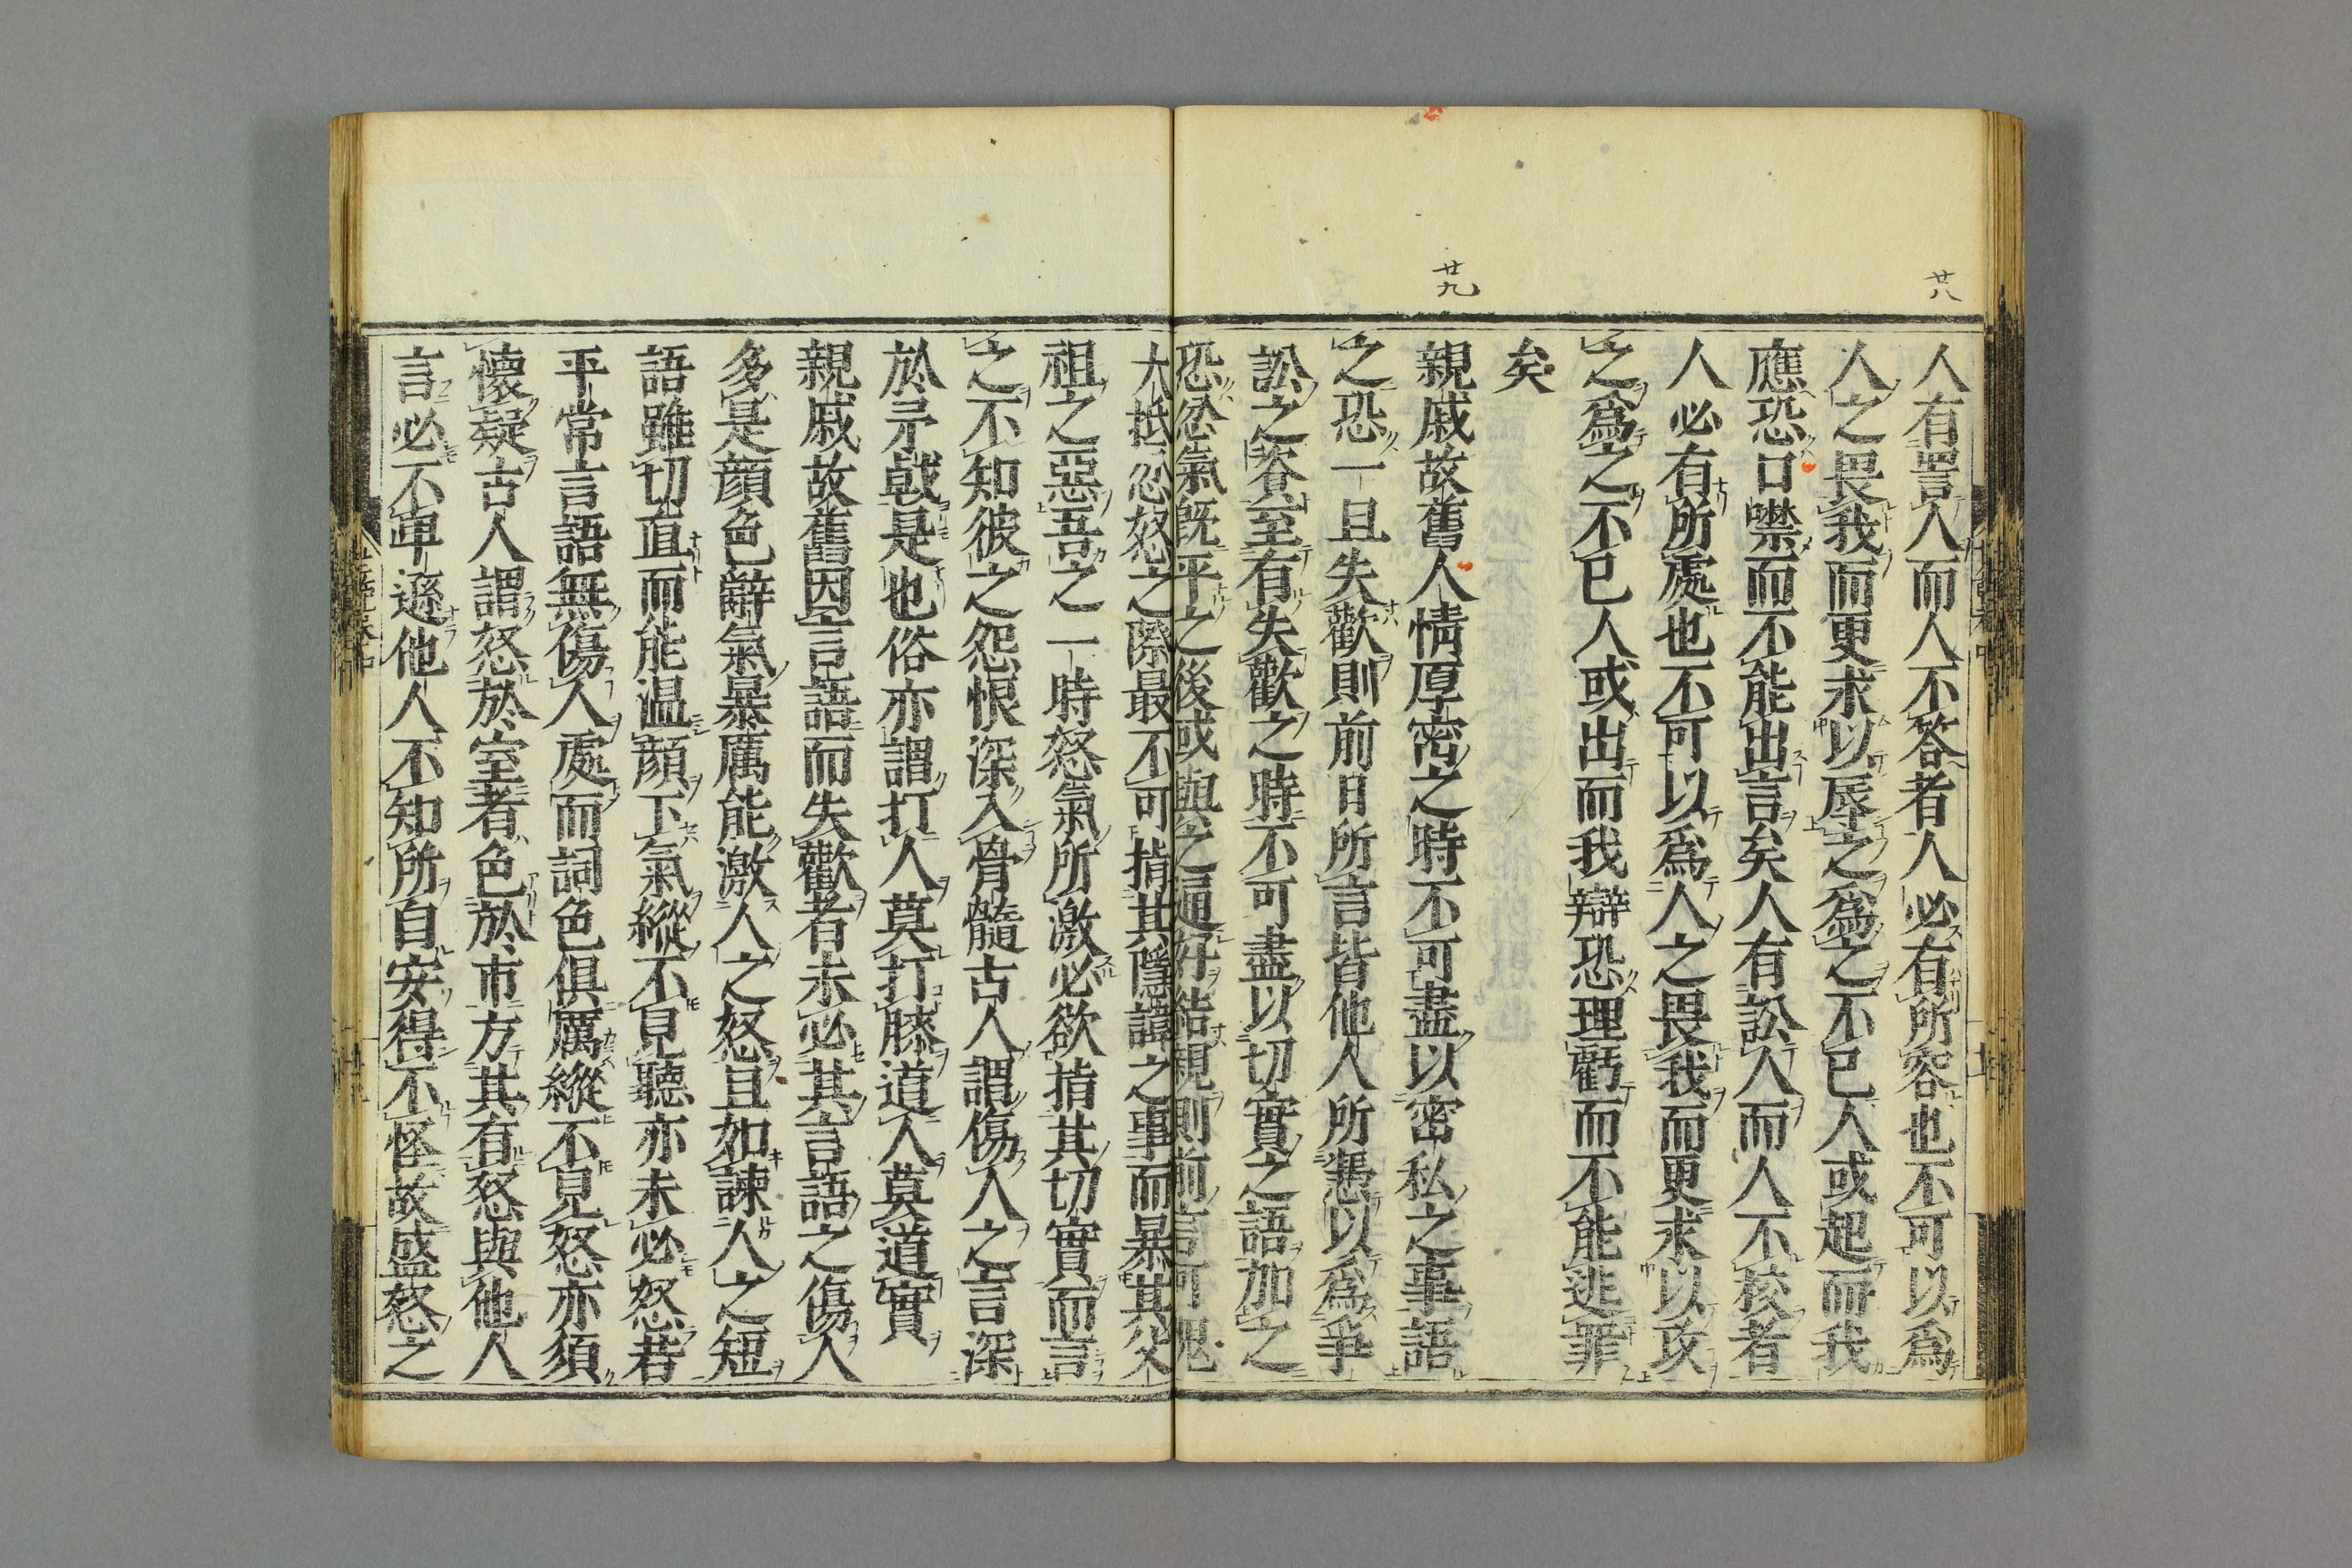 廿八
人有詈人而人不答者人必有所容也不可以爲
人之畏我而更求以辱之爲之不已人或起而我
應恐口噤而不能出言矣人有訟人而人不校者
人必有所處也不可以爲人之畏我而更求以攻
之爲之不已人或出而我辯恐理虧而不能逃罪
矣
廿九
親戚故舊人情厚密之時不可盡以密私之事語
之恐一旦失歡則前日所言皆他人所憑以爲爭
訟之資至有失歡之時不可盡以切實之語加之
恐忿氣既平之後或與之通好結親則前言可愧
大抵忿怒之際最不可指其隱諱之事而暴其父
祖之惡吾之一時怒氣所激必欲指其切實而言
之不知彼之怨恨深入骨髓古人謂傷人之言深
於矛戟是也俗亦謂打人莫打膝道人莫道實
親戚故舊因言語而失歡者未必其言語之傷人
多是顔色辭氣暴厲能激人之怒且如諫人之短
語雖切直而能温顔下氣縱不見聽亦未必怒若
平常言語無傷人處而詞色俱厲縱不見怒亦須
懷疑古人謂怒於室者色於市方其有怒與他人
言必不卑遜他人不知所自安得不怪故盛怒之